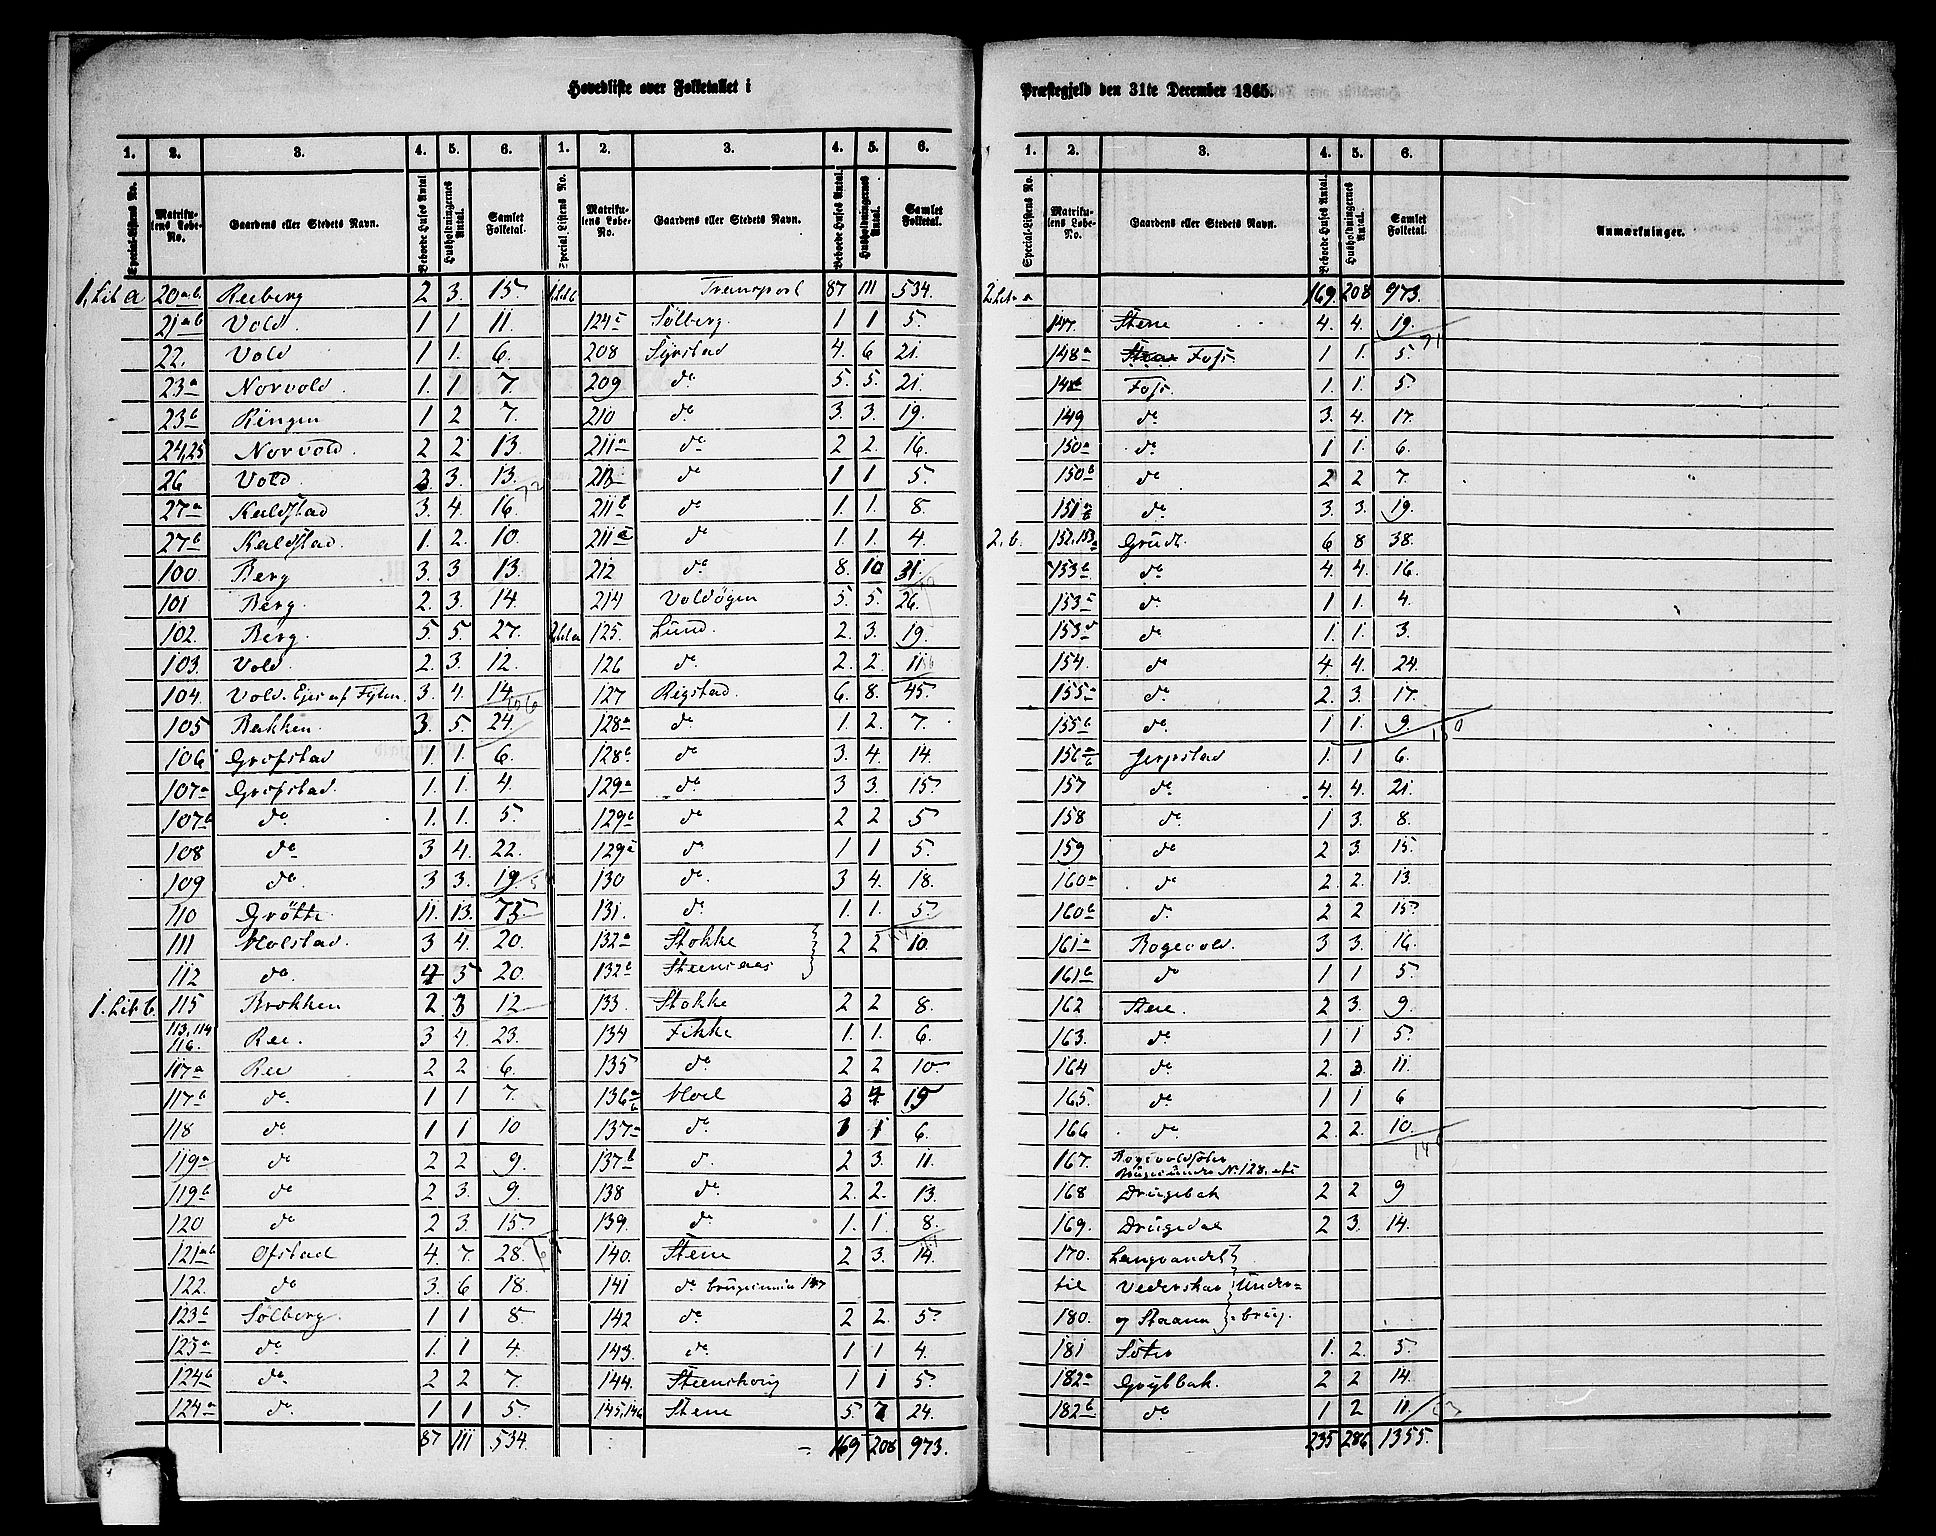 Hovedliste over Folketallet i
Præstegjeld den 31te December 1865.
1. 2. 3. 4. 5. 6. 1. 2. 3. 4. 5. 6.
Special-Listens No. Matrikulens Løbe-No. Gaardens eller Stedets Navn. Beboede Huses Antal Husholdningernes Antal. Samlet Folketal. Special-Listens No. Matrikulens Løbe-No. Gaardens eller Stedets Navn. Beboede Huses Antal. Husholdningernes Antal. Samlet Folketal.
1, Lit a 20 a.b. Reeberg 2 3. 15.
21 a b Vold 1 1 11.
22. Vold 1 1. 6.
23 a Norvold 1. 1 7.
23 b Ringen 1 2 7.
24,25 Norvold 2 2 13.
26 Vold 3 3. 13.
27 a Kaldstad 3. 4. 16.
27 b Kaldstad. 1. 2. 10.
100 Berg 3. 3 13.
101 Berg. 2. 3. 14.
102. Berg. 5. 5. 27.
103. Vold. 2. 3. 12.
104. Vold. Ejes af 3. 4. 14.
105 Bakken 3. 5. 24.
106 Grofstad 1. 1. 6.
107 a Grofstad. 1. 1. 4.
107 b do. 1. 1. 5.
108 do 3 4. 22.
109 do. 3 3. 19
110 Grøtte 11. 13. 75.
111 Molstad. 3 4. 20.
112 do. 4 5 20.
1. Lit b. 115 Brokken 2 3 12
113, 114 116. Ree. 3 4. 23.
117 a Ree 2 2 6.
117 b do. 1 1 7.
118 do. 1 1 10
119 a do 2 2 9.
119 b do 2 3. 9.
120 do 2 3. 15.
121 a b Ofstad 4. 7. 28.
122. do 3. 6 18.
123 b Sølberg. 1 1 8.
123 a do. 1. 1 4.
124 b do. 2 2 7.
124 a do. 1 1 5.
87 111 534.
1 Lit b Transport 87 111 534.
124 c Sølberg. 1 1 5.
208 Syrstad 4. 6 21.
209 do 5. 5. 21.
210 do 3. 3. 19.
211 a do. 2 2. 16.
213 do 1 1 5.
211 b do. 1. 1. 8.
211 c do 1. 1. 4.
212 do 8. 10 31.
214 Voldøgen 5. 5. 26.
2 Lit a 125. Lund. 2. 3. 19.
126 do. 2. 2. 11
127 Rigstad. 6. 8. 45.
128 a do. 1. 2. 7.
128 b do 3. 4. 14.
129 a do. 3 3. 15.
129 b do 2 2 5
129 c do. 1 1 5.
130 do. 3 4. 18.
131. do. 1. 1. 5.
132 a Stokke 2 2 10.
132 b Steensaas
133 Stokke 2 2 8.
134 Fikke 1. 1. 6.
135 do. 2 2 10
136 a b Moel 3 4. 19
137 a do. 1 1 6.
137 b d. 2 3. 11.
138 do. 2. 2. 13.
139. do. 1. 1. 8.
140. Stene 2 3. 14.
141 do.
142 do. 2 2. 5.
143. do. 1 1 4.
144. Steenshoug 1 1 5.
145,146 Stene 5. 7 24.
169 208 973.
1. 2. 3. 4. 5. 6.
Special-Listens No. Matrikulens Løbe-No. Gaardens eller Stedets Navn. Beboede Huses Antal. Husholdningernes Antal. Samlet Folketal. Anmærkninger.
2 Lit. a 169. 208 973.
147. Stene 4. 4. 19.
148 a Foss. 1 1. 5.
148 b Foss. 1 1. 5.
149 do 3. 4. 17.
150 a do. 1 1. 6.
150 b do 2 2 7.
151 a b do. 3. 3. 19.
2. b. 152, 153 a Grudt. 6 8 38.
153 b do. 4. 4. 16.
153 c do. 1 1. 4.
153 d do. 1. 1. 3.
154. do 4. 4. 24.
155 a do. 2. 3. 17.
155 b do. 1 1. 9.
156 a b Jerpstad 1. 1 6.
157 do. 4. 4. 21.
158 do. 1 3. 8.
159 do 2 3. 15.
160 a do 2. 2. 13.
160 b do. 2 2 15.
161 a Rogevold. 3 3. 16.
161 b do 1 1 5.
162 Stene. 2 3. 9.
163. do. 1. 1 5.
164 do 2. 3. 11.
165. do. 1 1 6
166 do. 2. 2. 10.
167.
168 Drugebak 2 2 9
169. Drugedal 2 3. 14.
170. Langvandet
til Vederskar Under-
180. og Staana brug.
181 Søter 1. 2. 5.
182 a Grytbak. 2 2 14.
182 b do. 1 2 11.
235 286 1355.